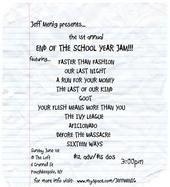 Jeff Menig presents...
the 1st annual
END OF THE SCHOOL YEAR JAM!!!
featuring...
FASTER THAN FASHION
OUR LAST NIGHT
A RUN FOR YOUR MONEY
THE LAST OF OUR KIND
GOOT
YOUR FLESH MEANS MORE THAN YOU
THE IVY LEAGUE
AFICIONADO
BEFORE THE MASSACRE
SIXTEEN WAYS
Sunday June 1st
@ The Loft
6 Crannell St
Poughkeepsie, NY
$12 adv/$15 dos
3:00pm
for more info visit: www.myspace.com/